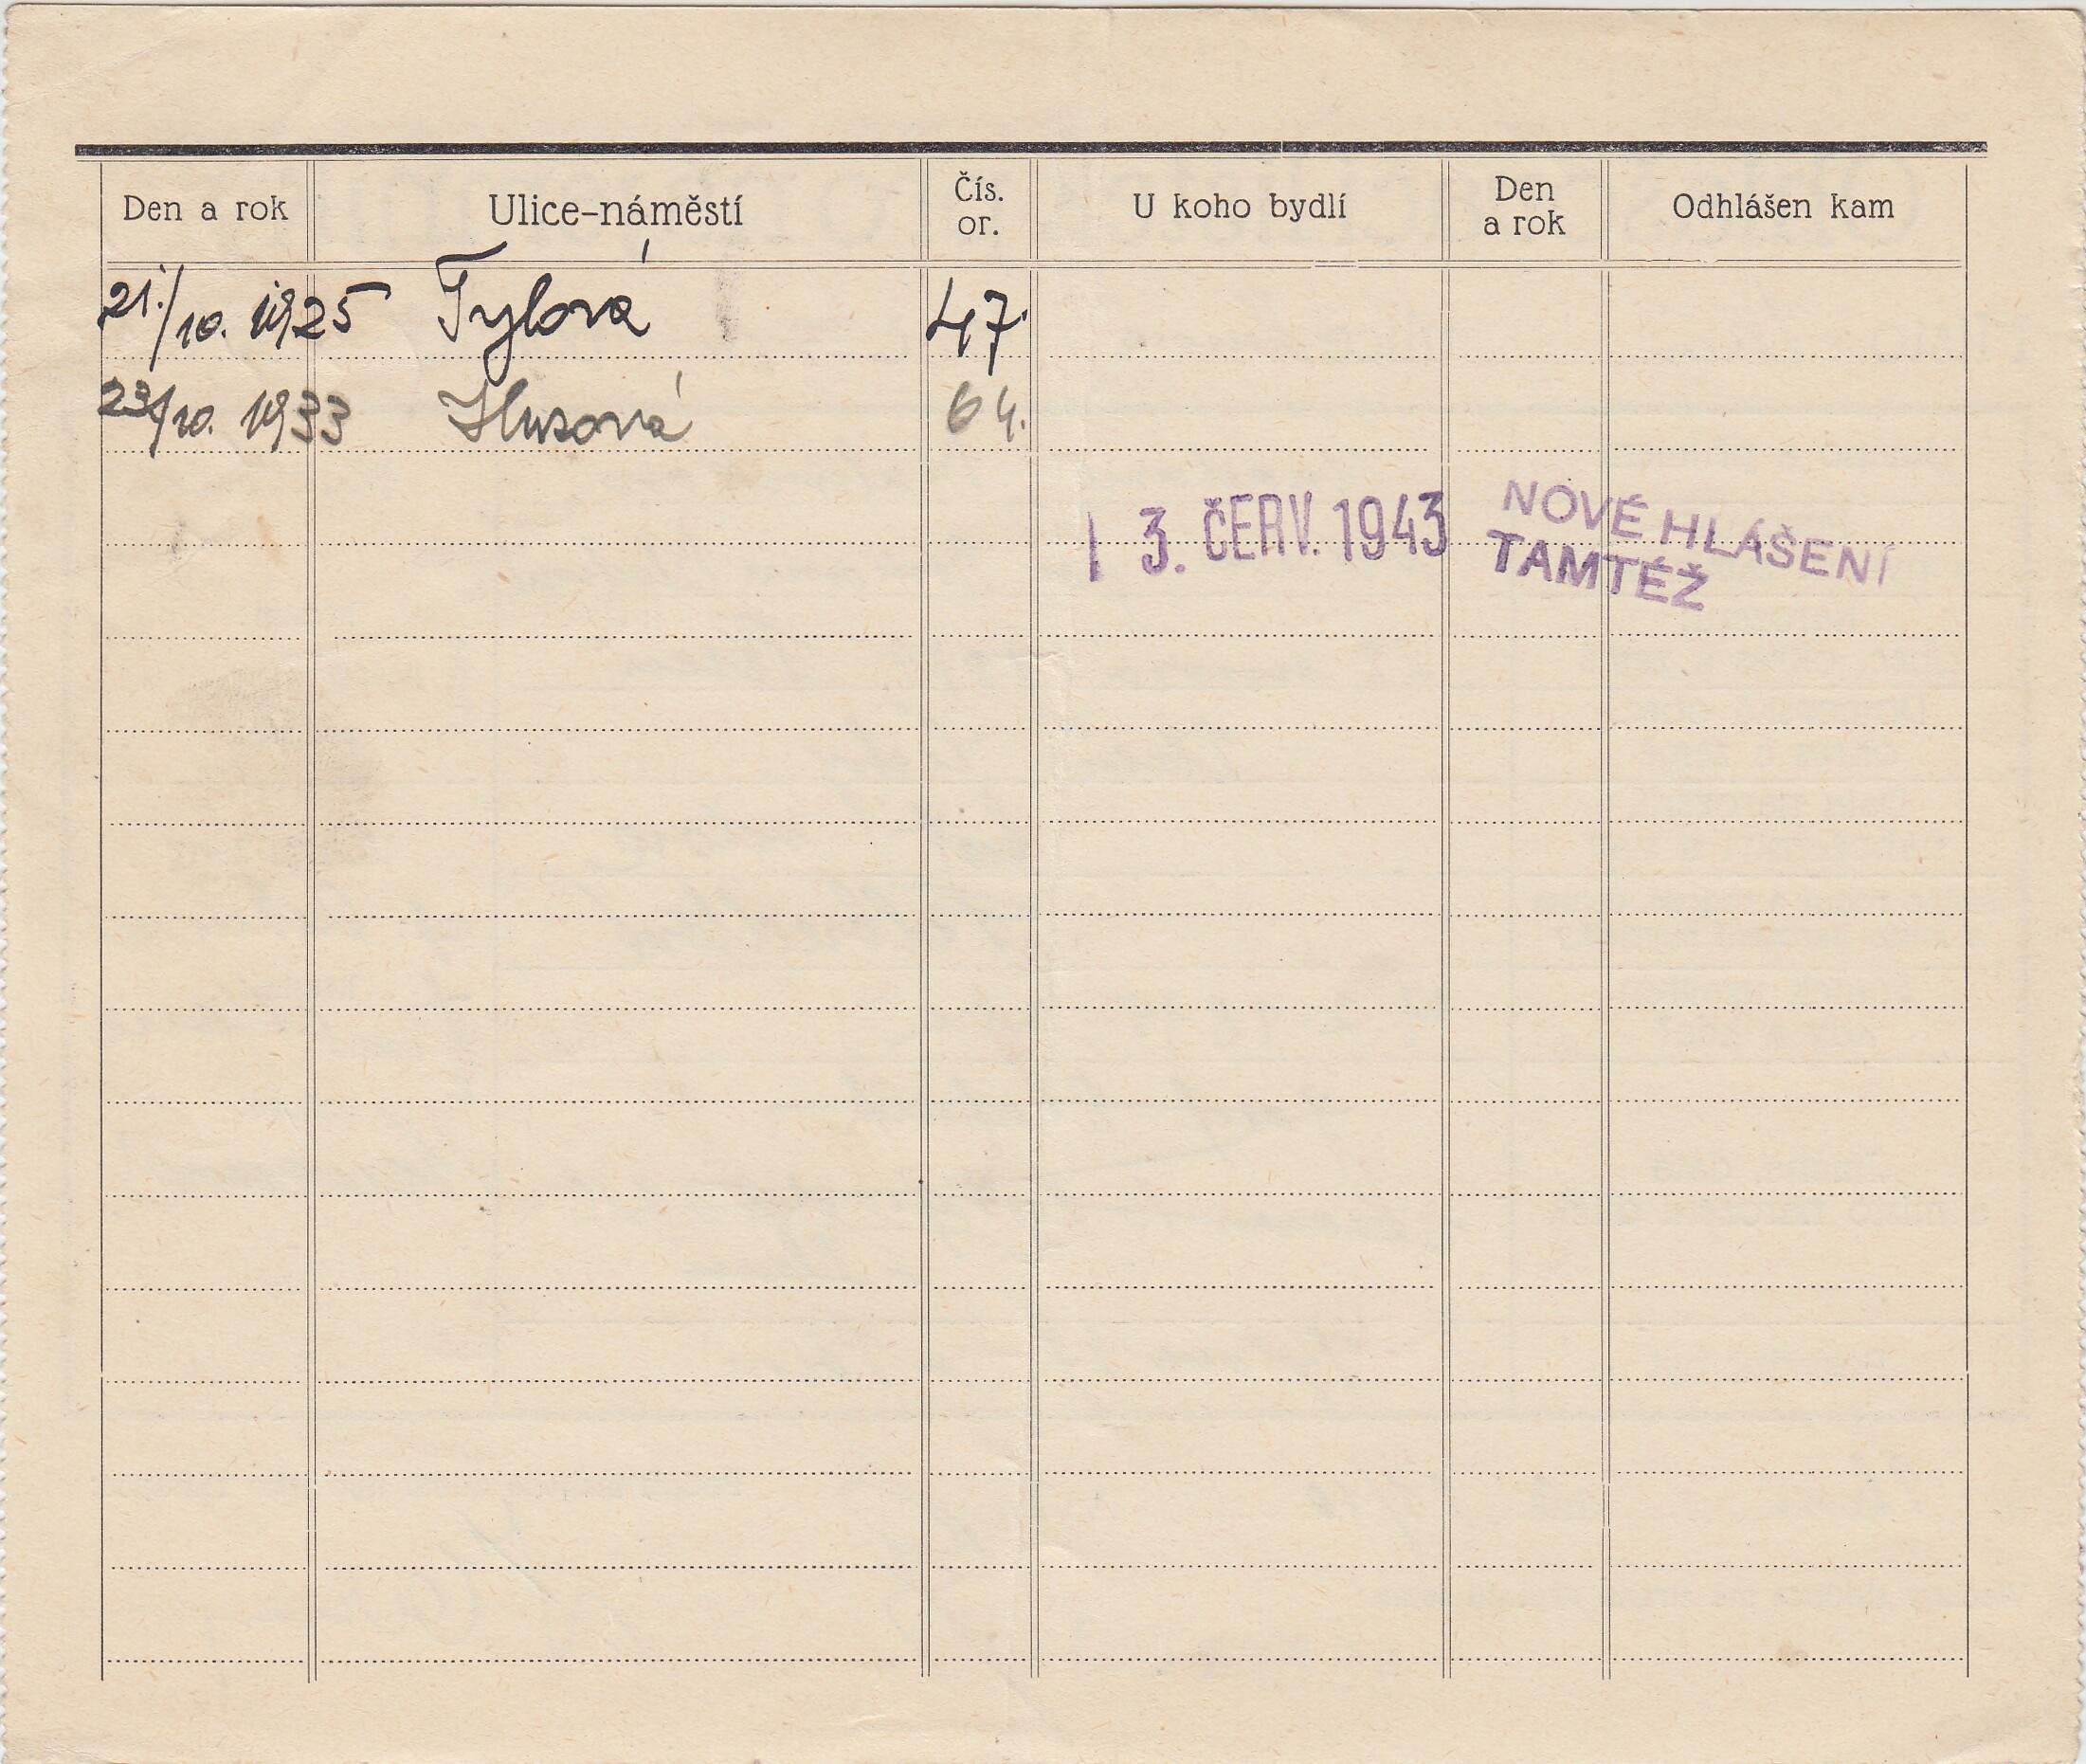 Den a rok Ulice-náměstí Čís. or. U koho bydlí Den a rok Odhlášen kam
21./10. 1925 Tylová 47.
23/10. 1933 Husová 64.
1 3. ČERV. 1943 NOVÉ HLÁŠENÍ
TAMTÉŽ